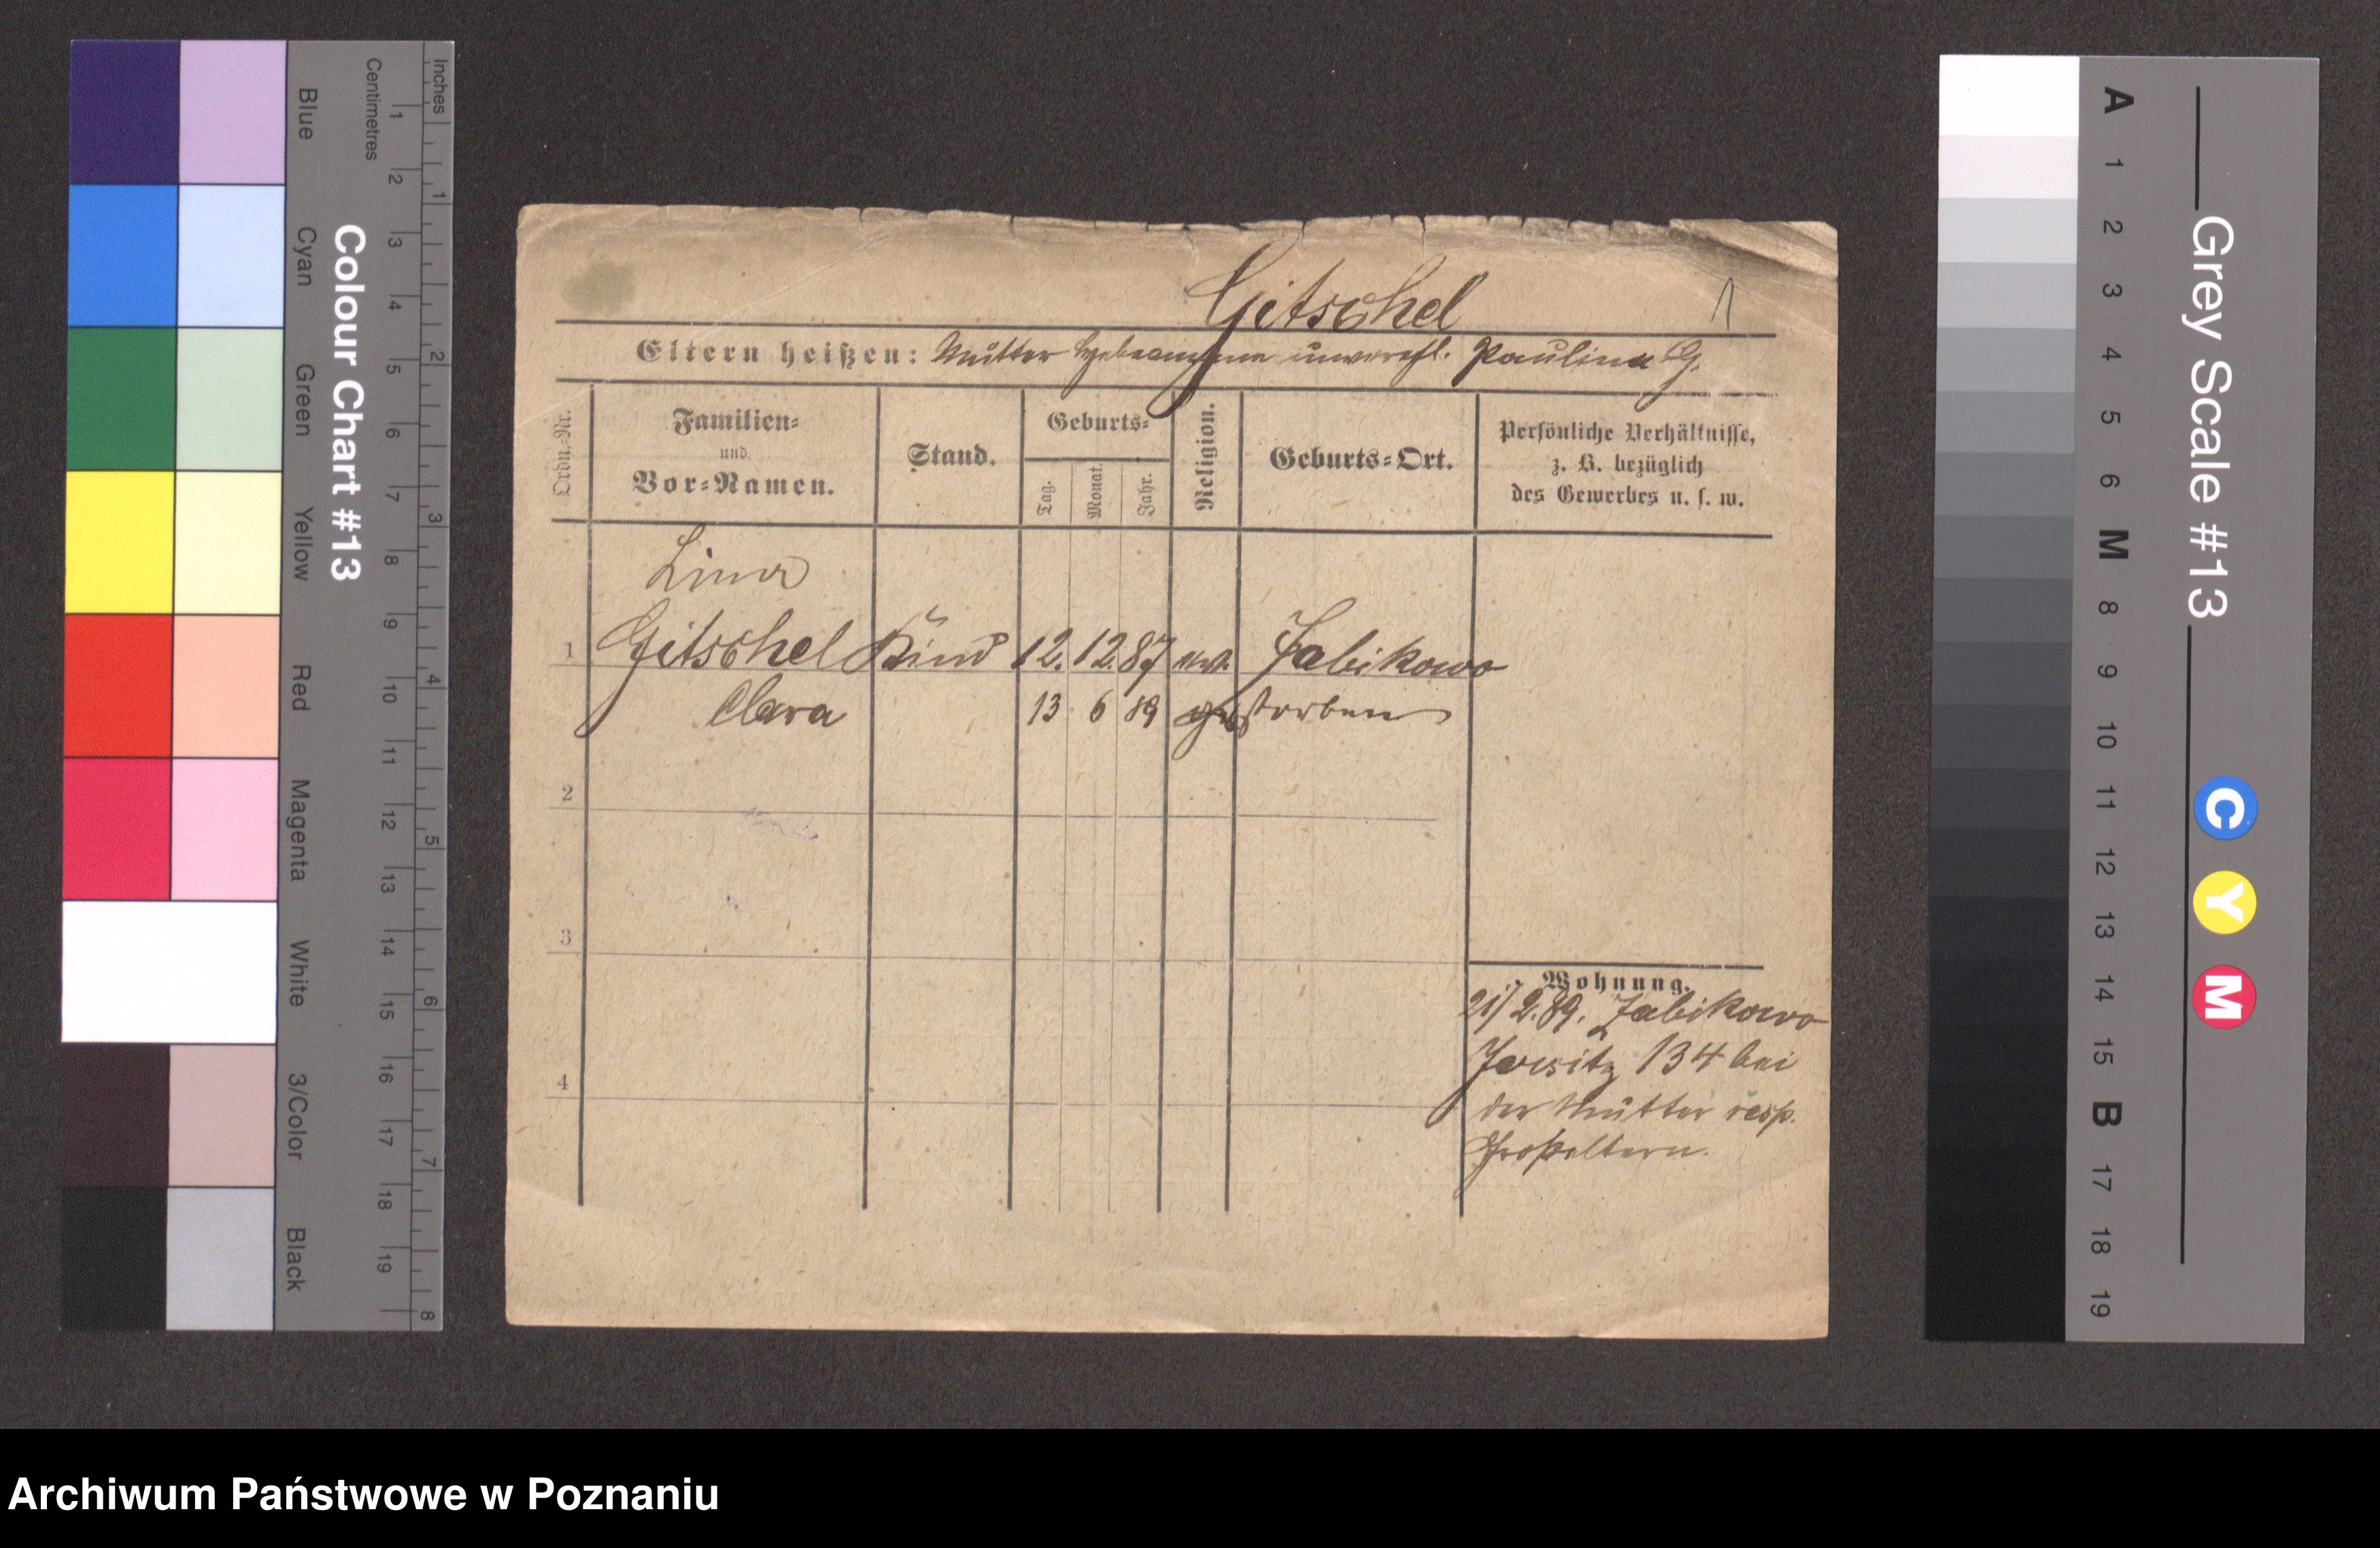 Blue Cyan Green Yellow Red Magenta White 3/Color Black
Colour Chart #13
Centimetres 1 2 3 4 5 6 7 8 9 10 11 12 13 14 15 16 17 18 19
Inches 1 2 3 4 5 6 7 8
Gitschel 1
Eltern heißen: Mutter Hebeamme unverehl. Paulina G.
Ordn.-Nr.
Familien-
und
Vor-Namen.
Stand.
Geburts-
Tag.
Monat.
Jahr.
Religion.
Geburts-Ort.
Persönliche Verhältnisse,
z. B. bezüglich
des Gewerbes u. s. w.
Lina
1 Gitschel Kind 12. 12. 87 ev. Zabikowo
Clara 13 6 89 gestorben
2
3
4
Wohnung.
21/2.89. Zabikowo
Jersitz 134 bei
der Mutter resp.
Großeltern.
Grey Scale #13
A 1 2 3 4 5 6 M 8 9 10 11 12 13 14 15 B 17 18 19
C Y M
Archiwum Państwowe w Poznaniu